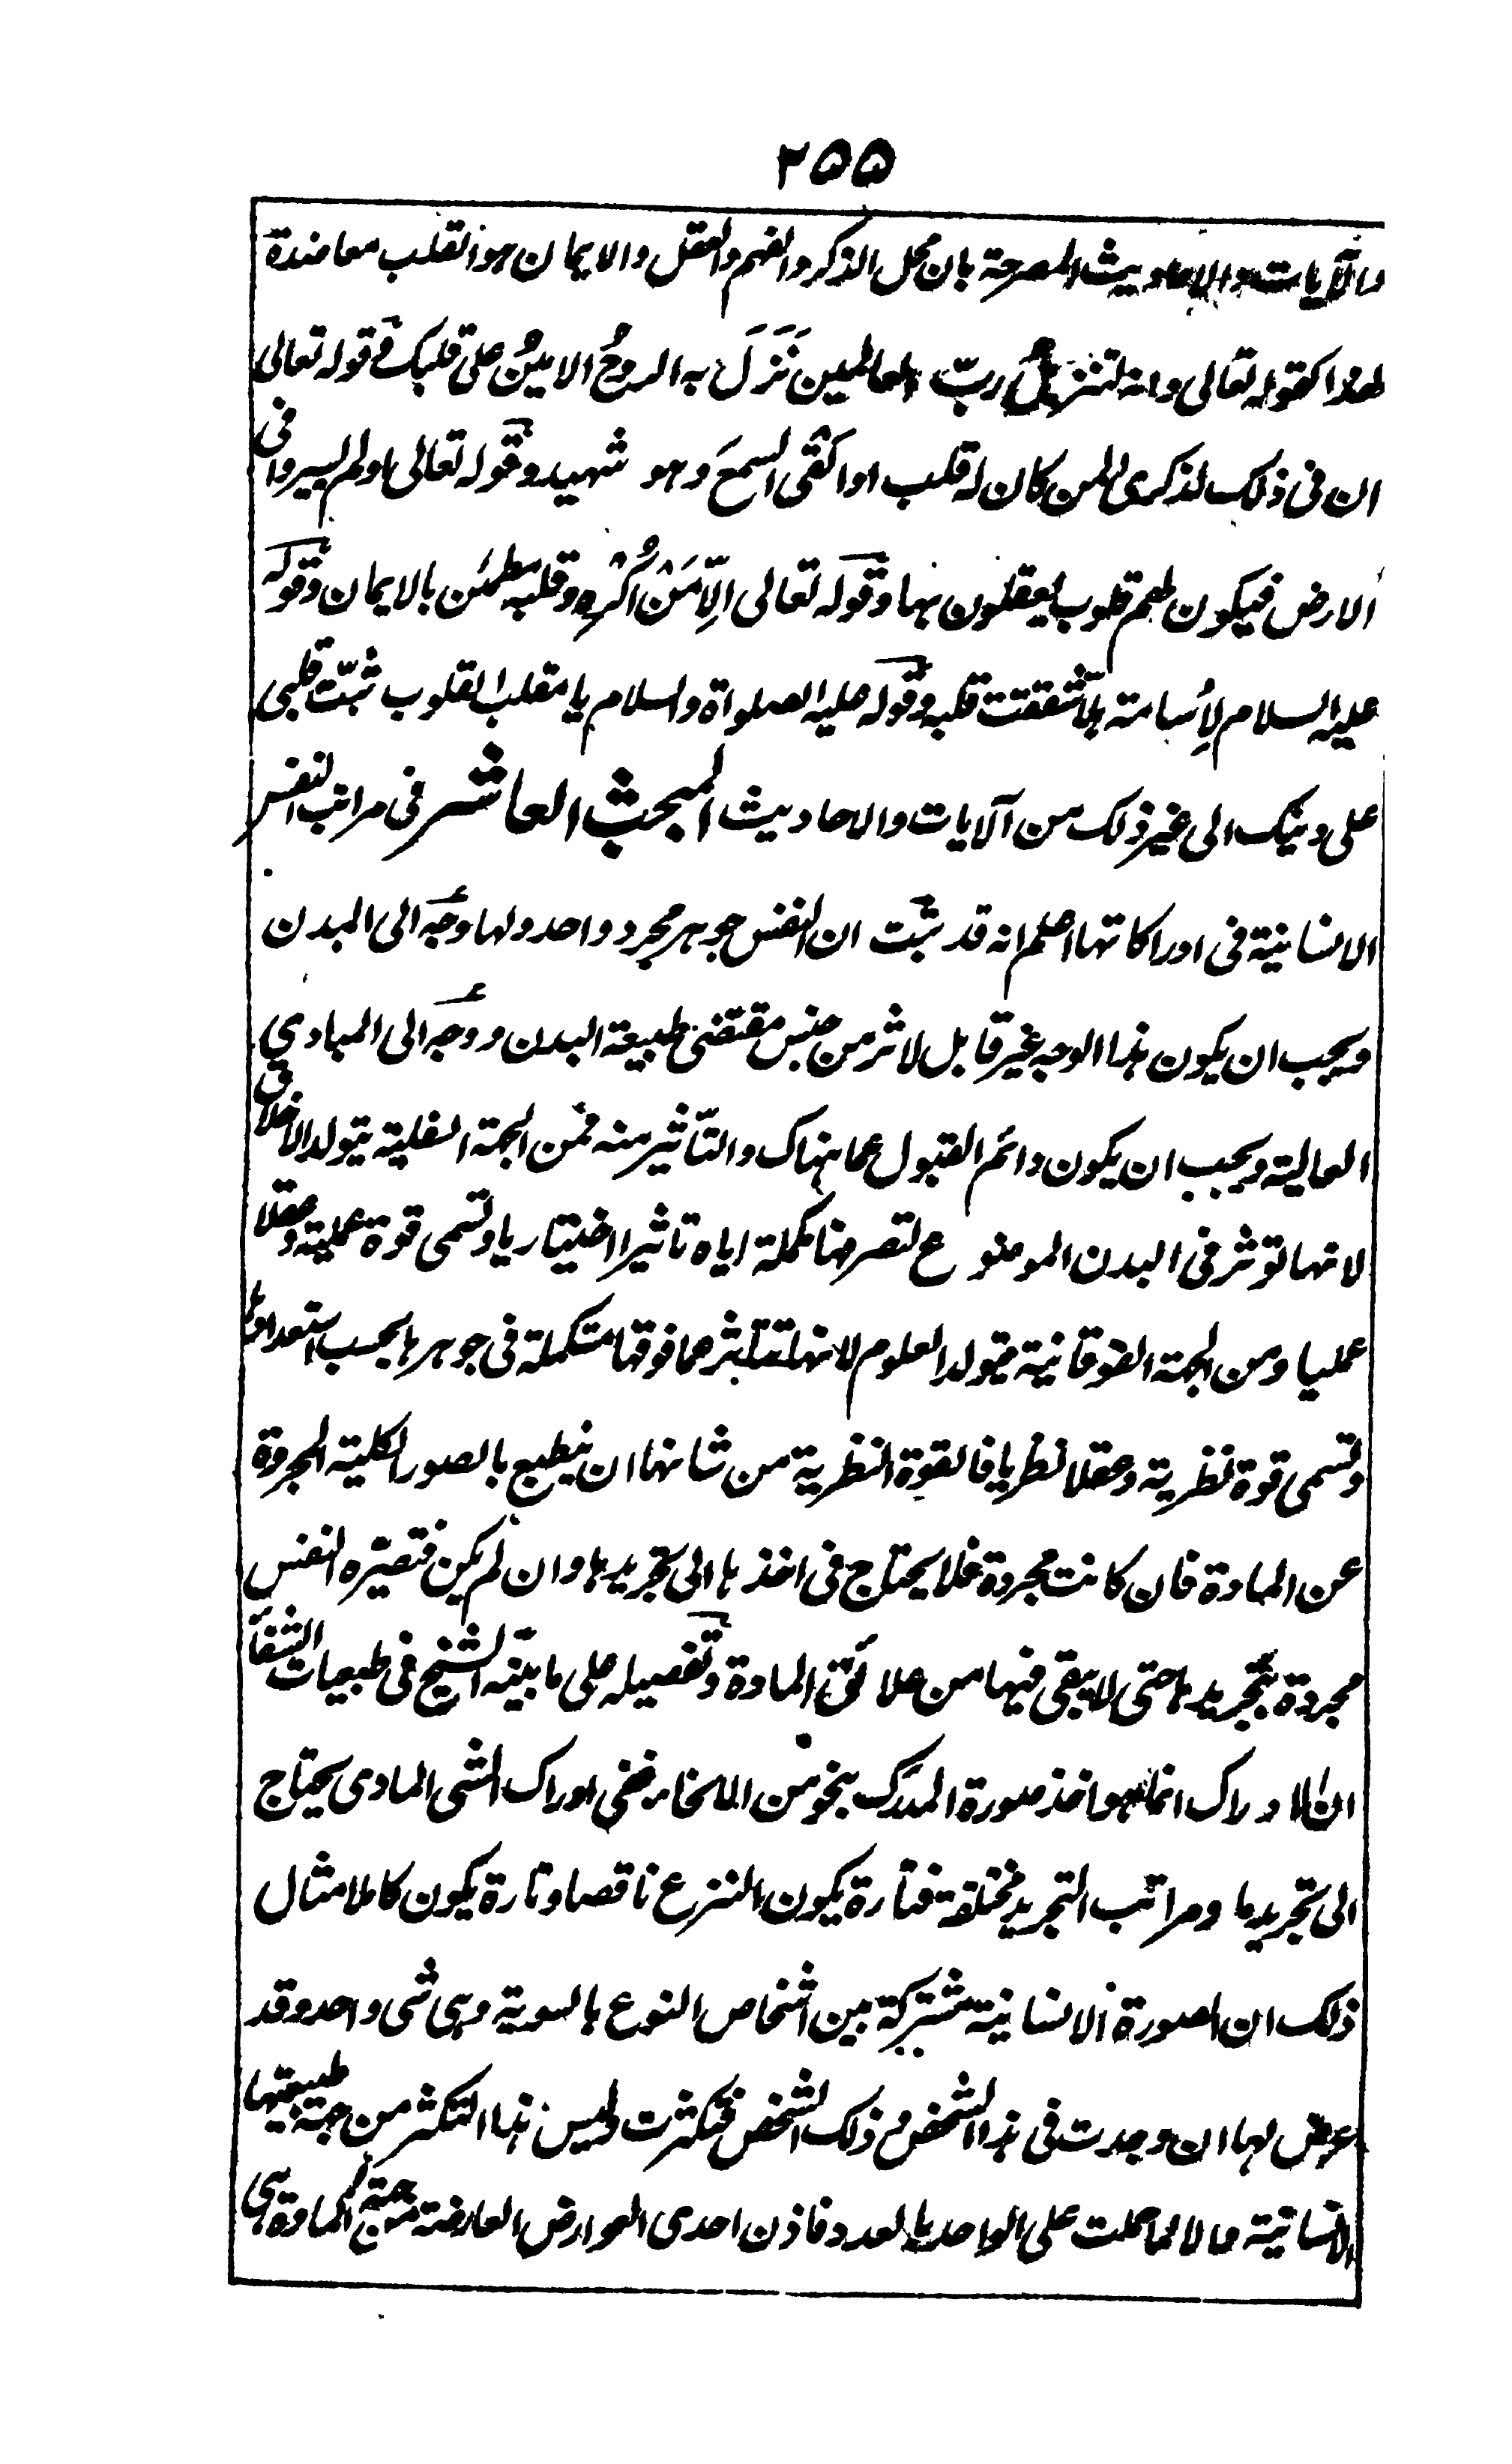 ٢٥٥
والآيات والاحاديث المصرحة بان محل الذكر والفهم والعقل والايمان هو القلب معاضدة
لهذا كقوله تعالى وانه لتنزيل ربّ العالمين نَزَلَ به الروحُ الامينُ على قلبك وقوله تعالى
ان فى ذلك لذكرى لمن كان له قلب او القى السمعَ وهو شهيد وقوله تعالى اولم يسيروا فى
الارض فيكون لهم قلوب يعقلون بها وقوله تعالى الّا مَنْ اُكْرِه وقلبه مطمئن بالايمان وقوله
عليه السلام لِاُسامة هلّا شققت قلبه وقوله عليه الصلواة والسلام يا مقلب القلوب ثبّت قلبى
على دينك الى غير ذلك من آلايات والاحاديث المبحث العاشر فى مراتب النفس
الانسانية فى ادراكاتها اعلم انه قد ثبت ان النفس جوهر مجرد واحد ولها وجهٌ الى البدن
ويجب ان يكون هذا الوجه غير قابل لاثر من جنس مقتضى طبيعة البدن ووجهٌ الى المبادي
العالية ويجب ان يكون دائم القبول عما هناك والتّأثير منه فمن الجهة السفلية يتولد الاخلاق
لانها توثر فى البدن الموضوع لتصرفها مكملة اياه تاثيرا اختياريا وتسمى قوة عملية وعقلا
عمليا ومن الجهة الفوقانية يتولد العلوم لانها تتأثر عما فوقها مستكملة فى جوهرها بحسب استعدادها
وتسمى قوة نظرية وعقلا نظريا فالقوة النظرية من شانها ان ينطبع بالصور الكلية المجردة
عن المادة فان كانت مجردة فلا يحتاج فى اخذها الى تجريدها وان لم يكن فتصيّره النفس
مجردة بتجريدها حتى لا يبقى فيها من علائق المادة وتفصيله على ما بيّنه الشيخ فى طبيعات الشفآ
ان الادراك انما هو اخذ صورة المدرك بنحو من الانحاء ففى ادراك الشى المادى يحتاج
الى تجريد ما ومراتب التجريد مختلفة فتارة يكون النزع ناقصا وتارة يكون كاملا مثال
ذلك ان الصورة الانسانية مشتركة بين اشخاص النوع بالسوية وهى شى واحد وقد
عرض لها ان وجدت فى هذا الشخص و ذلك الشخص فتكثرت وليس هذا التكثر من جهة طبيعتها
الانسانية والا لما حملت على الواحد بالعدد فاذن احدى العوارض العارضة من جهة المادة هى